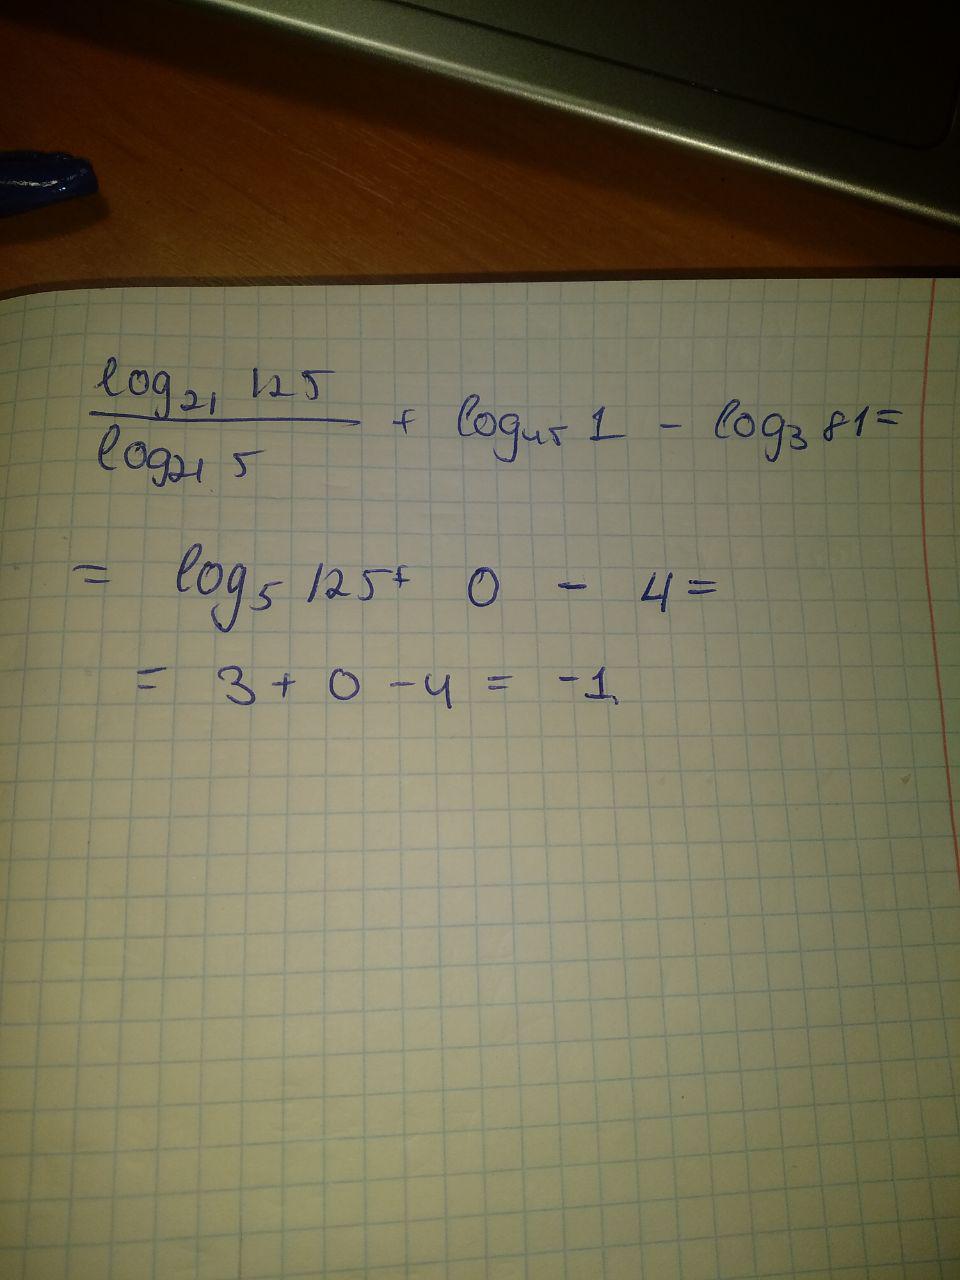 log₂₁ 125 / log₂₁ 5 + log₄₅ 1 - log₃ 81 =
= log₅ 125 + 0 - 4 =
= 3 + 0 - 4 = -1